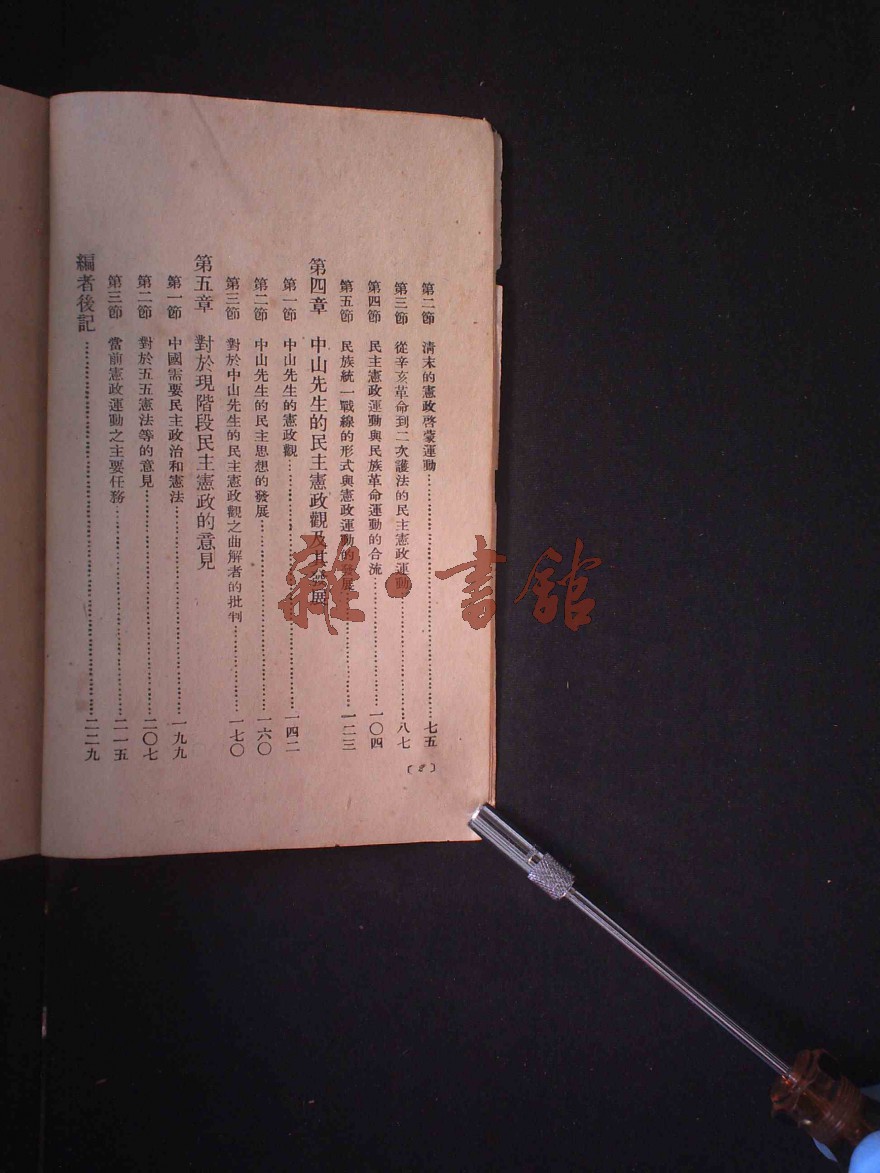 第二節　清末的憲政啓蒙運動…………七五
第三節　從辛亥革命到二次護法的民主憲政運動…………八七
第四節　民主憲政運動與民族革命運動的合流…………一〇四
第五節　民族統一戰線的形式與憲政運動的發展…………一二三
第四章　中山先生的民主憲政觀及其發展
第一節　中山先生的憲政觀…………一四二
第二節　中山先生的民主思想的發展…………一六〇
第三節　對於中山先生的民主憲政觀之曲解者的批判…………一七〇
第五章　對於現階段民主憲政的意見
第一節　中國需要民主政治和憲法…………一九九
第二節　對於五五憲法等的意見…………二〇七
第三節　當前憲政運動之主要任務…………二一五
編者後記…………二二九
〔2〕
雜·書館